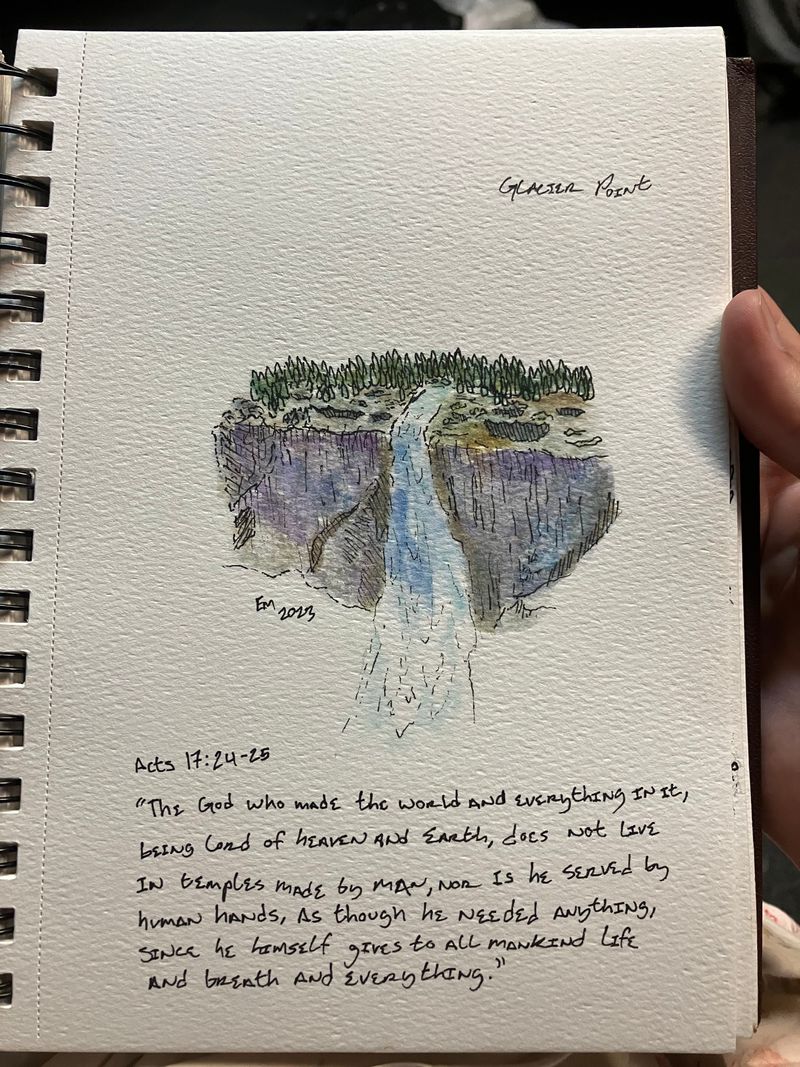 Glacier Point
EM 2023
Acts 17:24-25
"The God who made the world and everything in it,
being Lord of heaven and Earth, does not live
in temples made by man, nor is he served by
human hands, as though he needed anything,
since he himself gives to all mankind life
and breath and everything."